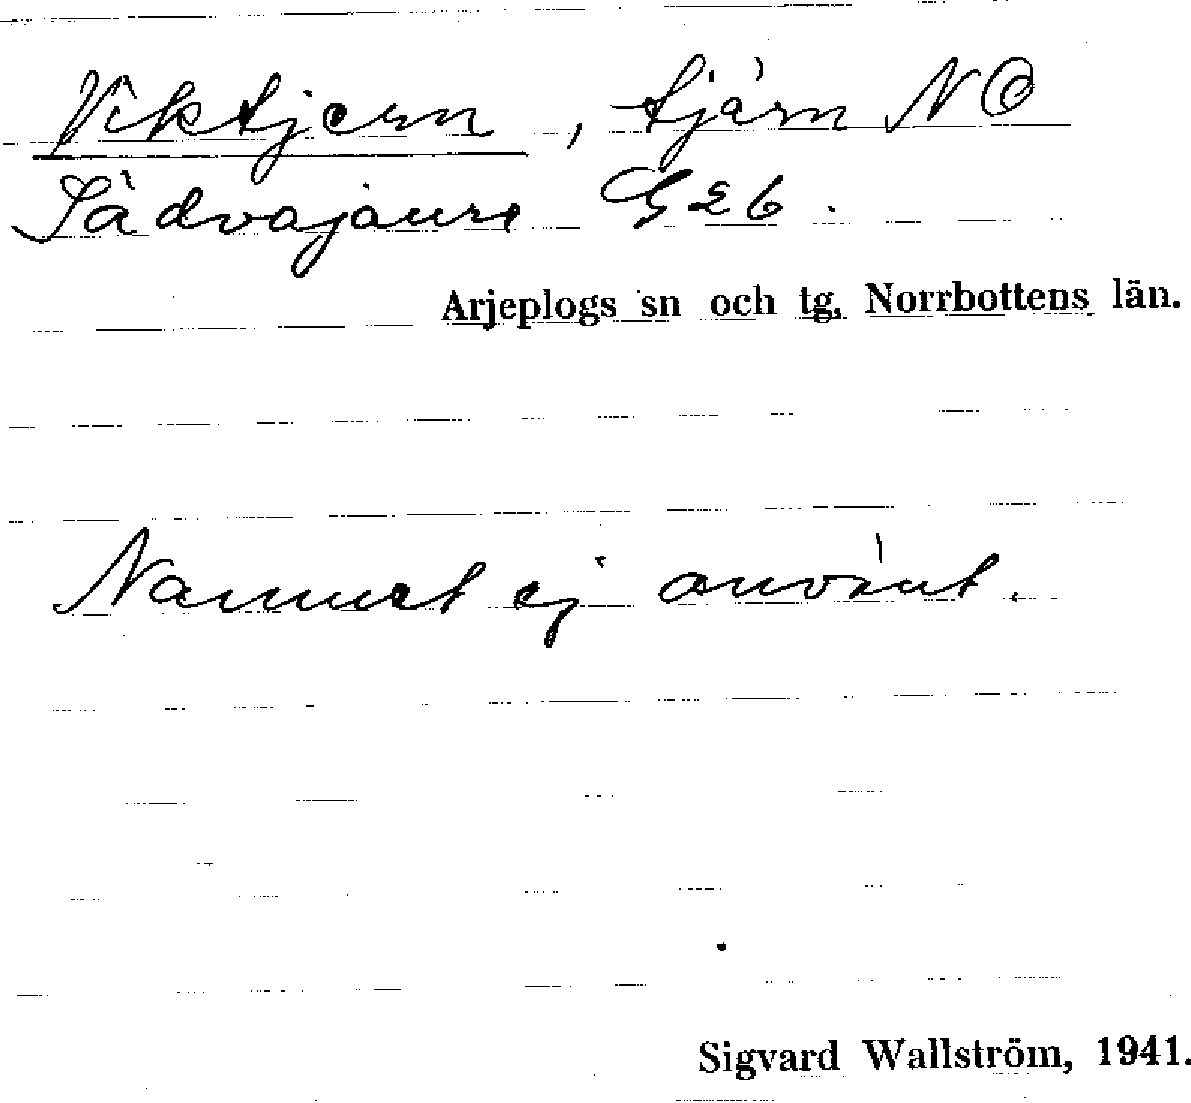 Viktjern, tjärn NO
Sädvajaure G26.
Arjeplogs sn och tg, Norrbottens län.
Namnet ej använt.
Sigvard Wallström, 1941.